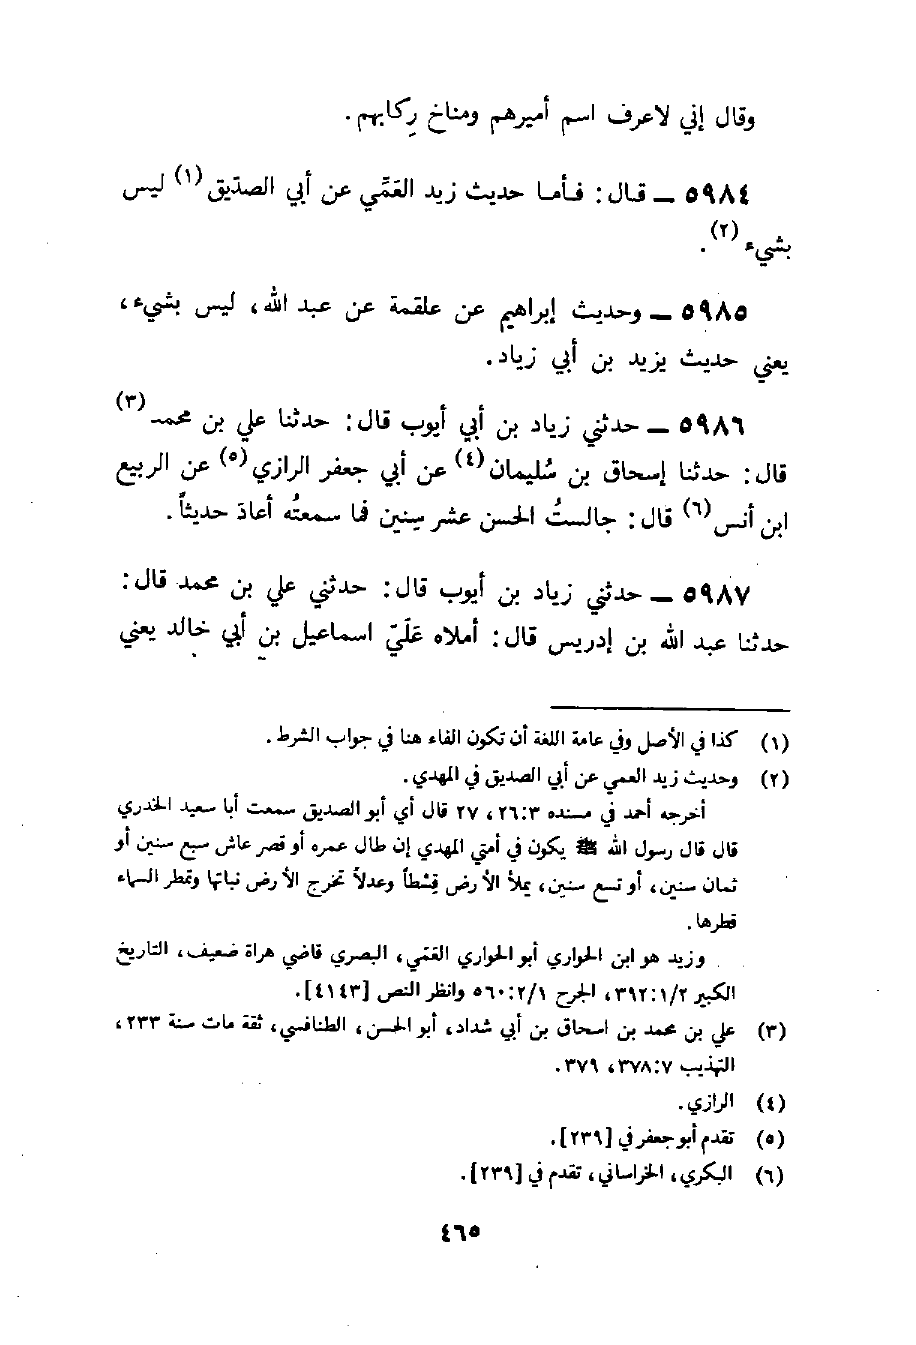 وقال إني لاعرف اسم أميرهم ومناخ رِكابهم .
٥٩٨٤ ــ قال : فأما حديث زيد العَمِّي عن أبي الصدّيق (١) ليس
بشيء (٢) .
٥٩٨٥ ــ وحديث إبراهيم عن علقمة عن عبد الله ، ليس بشيء ،
يعني حديث يزيد بن أبي زياد .
٥٩٨٦ ــ حدثني زياد بن أبي أيوب قال : حدثنا علي بن محمد (٣)
قال : حدثنا إسحاق بن سُليمان (٤) عن أبي جعفر الرازي (٥) عن الربيع
ابن أنس (٦) قال : جالستُ الحسن عشر سِنين فما سمعتُه أعادَ حديثاً .
٥٩٨٧ ــ حدثني زياد بن أيوب قال : حدثني علي بن محمد قال :
حدثنا عبد الله بن إدريس قال : أملاه عَلَيّ اسماعيل بن أبي خالد يعني
(١) كذا في الأصل وفي عامة اللغة أن تكون الفاء هنا في جواب الشرط .
(٢) وحديث زيد العمي عن أبي الصديق في المهدي .
أخرجه أحمد في مسنده ٣:٢٦ ، ٢٧ قال أي أبو الصديق سمعت أبا سعيد الخدري
قال قال رسول الله ﷺ يكون في أمتي المهدي إن طال عمره أو قصر عاش سبع سنين أو
ثمان سنين ، أو تسع سنين ، يملأ الأرض قِسْطاً وعدلاً تخرج الأرض نباتها وتمطر السماء
قطرها .
وزيد هو ابن الحواري أبو الحواري العَمّي ، البصري قاضي هراة ضعيف ، التاريخ
الكبير ٣٩٢:١/٢ ، الجرح ٥٦٠:٢/١ وانظر النص [٤١٤٣] .
(٣) علي بن محمد بن اسحاق بن أبي شداد ، أبو الحسن ، الطنافسي ، ثقة مات سنة ٢٣٣ ،
التهذيب ٣٧٨:٧ ، ٣٧٩ .
(٤) الرازي .
(٥) تقدم أبو جعفر في [٢٣٩] .
(٦) البكري ، الخراساني ، تقدم في [٢٣٩] .
٤٦٥